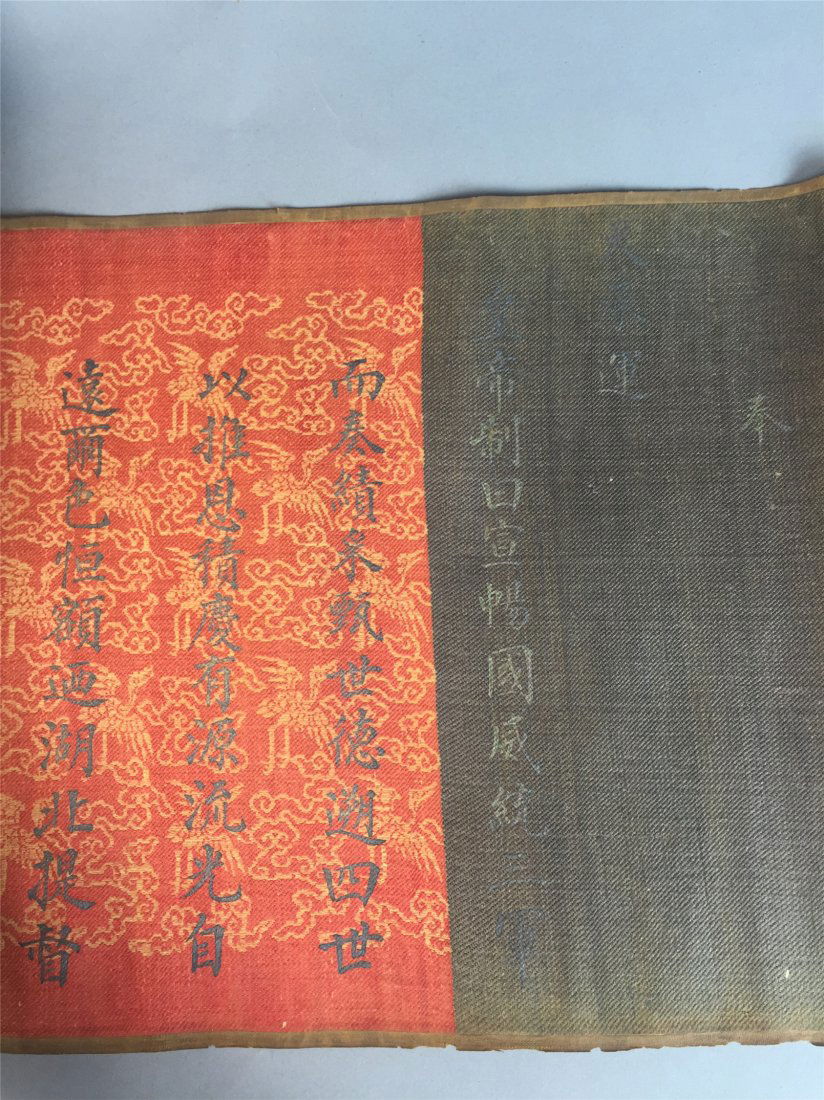 奉
天承運
皇帝制曰宣暢國威統三軍
而奏績彖甄世德遡四世
以推恩積慶有源流光自
遠爾色恒額迺湖北提督